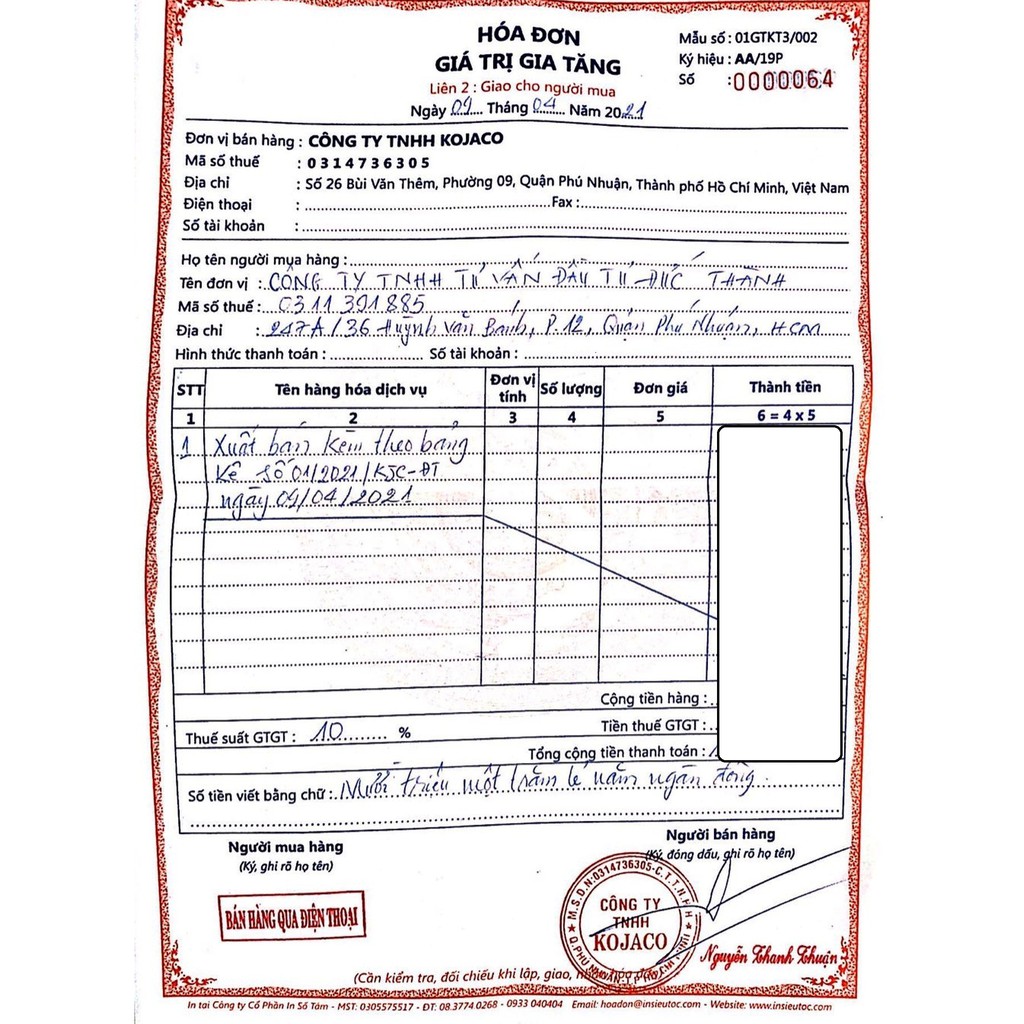 HÓA ĐƠN
GIÁ TRỊ GIA TĂNG
Liên 2 : Giao cho người mua
Ngày 09 Tháng 04 Năm 2021
Mẫu số : 01GTKT3/002
Ký hiệu : AA/19P
Số : 0000064
Đơn vị bán hàng : CÔNG TY TNHH KOJACO
Mã số thuế : 0314736305
Địa chỉ : Số 26 Bùi Văn Thêm, Phường 09, Quận Phú Nhuận, Thành phố Hồ Chí Minh, Việt Nam
Điện thoại : Fax :
Số tài khoản :
Họ tên người mua hàng :
Tên đơn vị : CÔNG TY TNHH TƯ VẤN ĐẦU TƯ ĐỨC THÀNH
Mã số thuế : 0311391885
Địa chỉ : 247A/36 Huỳnh Văn Bánh, P.12, Quận Phú Nhuận, HCM
Hình thức thanh toán : Số tài khoản :
STT Tên hàng hóa dịch vụ Đơn vị tính Số lượng Đơn giá Thành tiền
1 2 3 4 5 6 = 4 x 5
1 Xuất bán kèm theo bảng
kê số 01/2021/KJC-ĐT
ngày 09/04/2021
Cộng tiền hàng :
Thuế suất GTGT : 10 % Tiền thuế GTGT :
Tổng cộng tiền thanh toán :
Số tiền viết bằng chữ : Mười triệu một trăm lẻ năm ngàn đồng.
Người mua hàng
(Ký, ghi rõ họ tên)
Người bán hàng
(Ký, đóng dấu, ghi rõ họ tên)
BÁN HÀNG QUA ĐIỆN THOẠI
M.S.D.N:0314736305-C.T.T.N.H.H
CÔNG TY
TNHH
KOJACO
Nguyễn Thanh Thuận
(Cần kiểm tra, đối chiếu khi lập, giao, nhận hóa đơn)
In tại Công ty Cổ Phần In Số Tám - MST: 0305575517 - ĐT: 08.3774 0268 - 0933 040404 Email: hoadon@insieutoc.com - Website: www.insieutoc.com